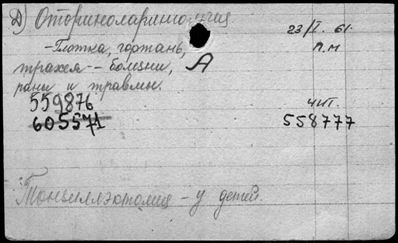 Д) Оториноларингология
23/I. 61.
А.М
- Глотка, гортань,
трахея - болезни, А
раны и травмы.
559876
605571
чит.
558777
Тонзиллэктомия - у детей.